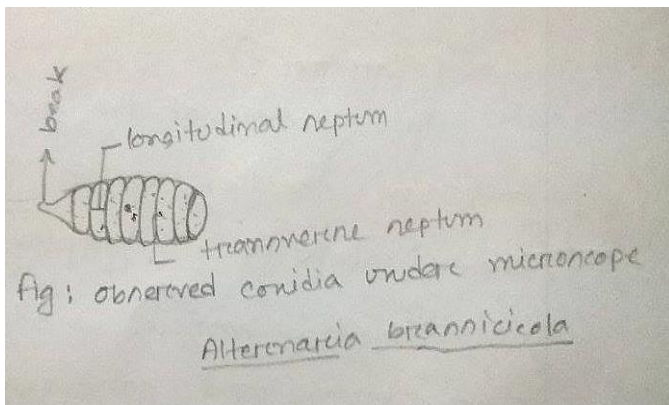 beak
longitudinal septum
transverse septum
fig: observed conidia under microscope
Alternaria brassicicola